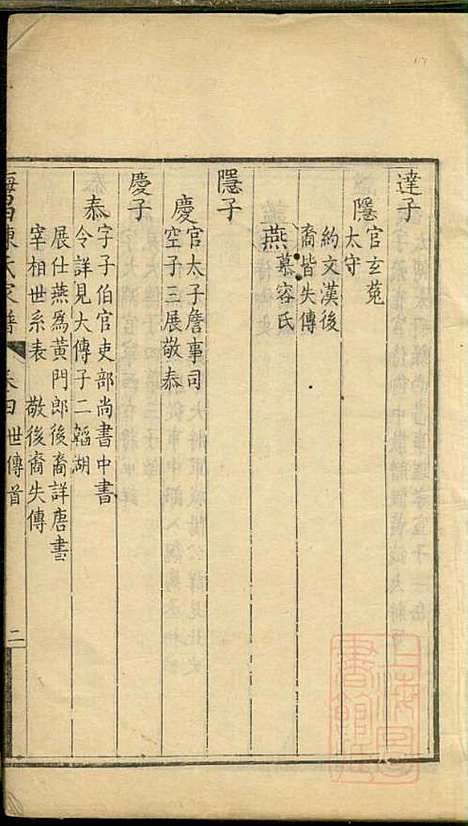 達子
隱官玄菟
太守
約文漢後
裔皆失傳
燕慕容氏
隱子
慶官太子詹事司
空子三展敬泰
慶子
泰字子伯官吏部尚書中書
令詳見大傳子二韜湖
展仕燕爲黃門郎後裔詳唐書
宰相世系表 敬後裔失傳
海昌陳氏家譜 卷四世傳首 二
上海圖書館藏